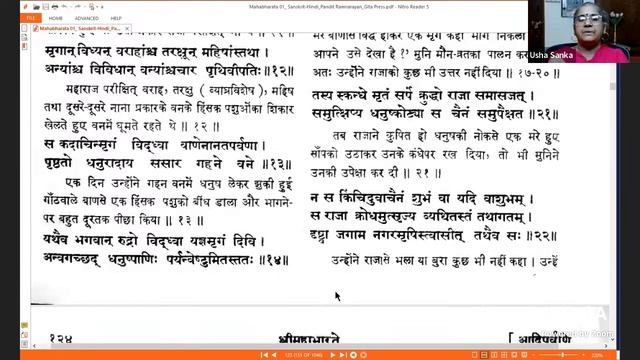 Mahabharata 01_ Sanskrit-Hindi_Pandit Ramnarayan_Gita Press.pdf - Nitro Reader 5
FILE
HOME
ADVANCED
HELP
Mahabharata 01_ Sanskrit-Hindi_Pandit Ramnarayan_Gita Pres...
मृगान् विध्यन् वराहांश्च तरक्षून् महिषांस्तथा ।
अन्यांश्च विविधान् वन्यांश्चचार पृथिवीपतिः॥१२॥
महाराज परीक्षित् वराह, तरक्षु (व्याघ्रविशेष), महिष
तथा दूसरे-दूसरे नाना प्रकारके वनके हिंसक पशुओंका शिकार
खेलते हुए वनमें घूमते रहते थे ॥ १२ ॥
स कदाचिन्मृगं विद्ध्वा बाणेनानतपर्वणा ।
पृष्ठतो धनुरादाय ससार गहने वने ॥१३॥
एक दिन उन्होंने गहन वनमें धनुष लेकर झुकी हुई
गाँठवाले बाणसे एक हिंसक पशुको बींध डाला और भागने-
पर बहुत दूरतक पीछा किया ॥ १३ ॥
यथैव भगवान् रुद्रो विद्ध्वा यज्ञमृगं दिवि ।
अन्वगच्छद् धनुष्पाणिः पर्यन्वेष्टुमितस्ततः॥१४॥
मेरे बाणोंसे विद्ध होकर एक मृग कहीं भाग निकला
आपने उसे देखा है ?' मुनि मौन-व्रतका पालन कर
अतः उन्होंने राजाको कुछ भी उत्तर नहीं दिया ॥ १७-२० ॥
तस्य स्कन्धे मृतं सर्पं क्रुद्धो राजा समासजत् ।
समुत्क्षिप्य धनुष्कोट्या स चैनं समुपैक्षत ॥२१॥
तब राजाने कुपित हो धनुषकी नोकसे एक मरे हुए
साँपको उठाकर उनके कंधेपर रख दिया, तो भी मुनिने
उनकी उपेक्षा कर दी ॥ २१ ॥
न स किंचिदुवाचैनं शुभं वा यदि वाशुभम् ।
स राजा क्रोधमुत्सृज्य व्यथितस्तं तथागतम् ।
दृष्ट्वा जगाम नगरमृषिस्त्वासीत् तथैव सः ॥२२॥
उन्होंने राजासे भला या बुरा कुछ भी नहीं कहा । उन्हें
१२४
श्रीमहाभारते
[ आदिपर्वणि
Usha Sanka
Powered by Zoom
220%